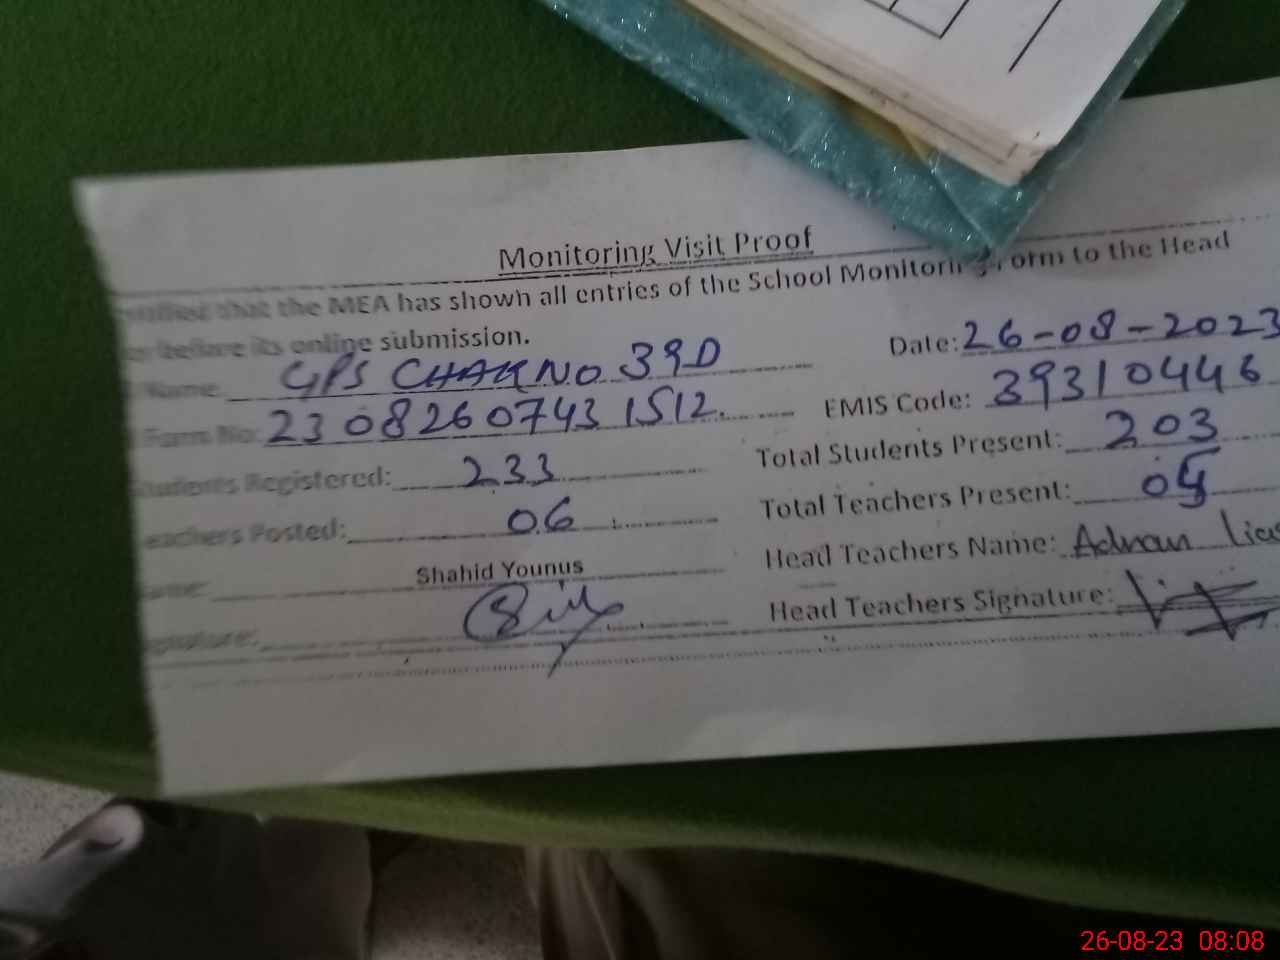 Monitoring Visit Proof
that the MEA has shown all entries of the School Monitoring Form to the Head
before its online submission.
Name: GPS CHAK NO 39D Date: 26-08-2023
Form No: 23082607431512. EMIS Code: 39310446
Students Registered: 233 Total Students Present: 203
Teachers Posted: 06 Total Teachers Present:
Name: Shahid Younus Head Teachers Name: Adnan
Signature: Head Teachers Signature:
26-08-23 08:08